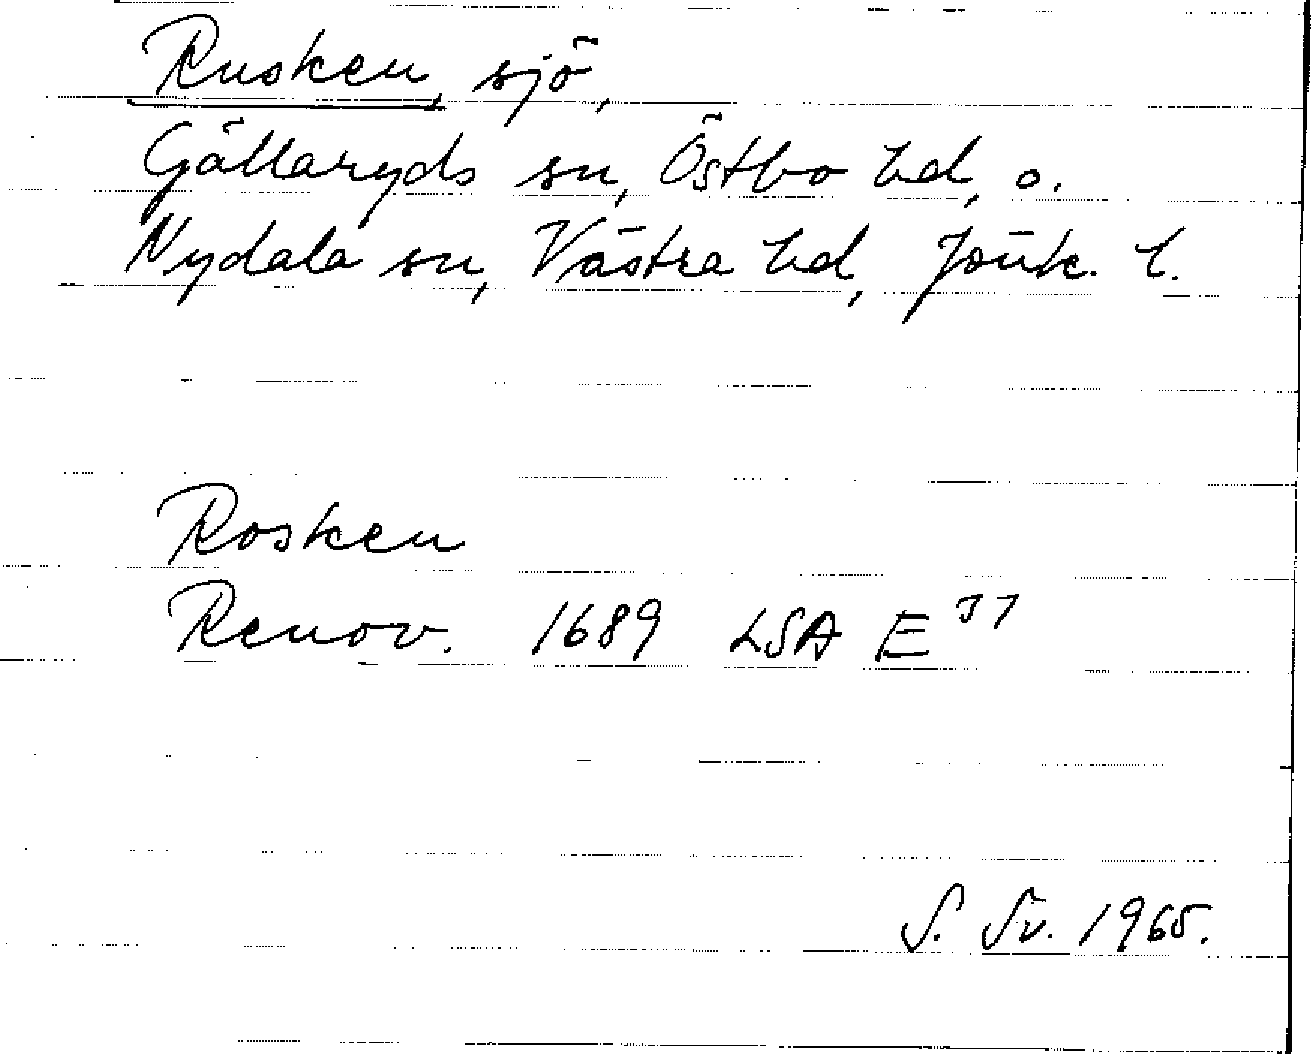 Rusken, sjö,
Gällaryds sn, Östbo hd, o.
Nydala sn, Västra hd, Jönk. l.
Rosken
Renov. 1689 LSA E 37
S. Sv. 1965.